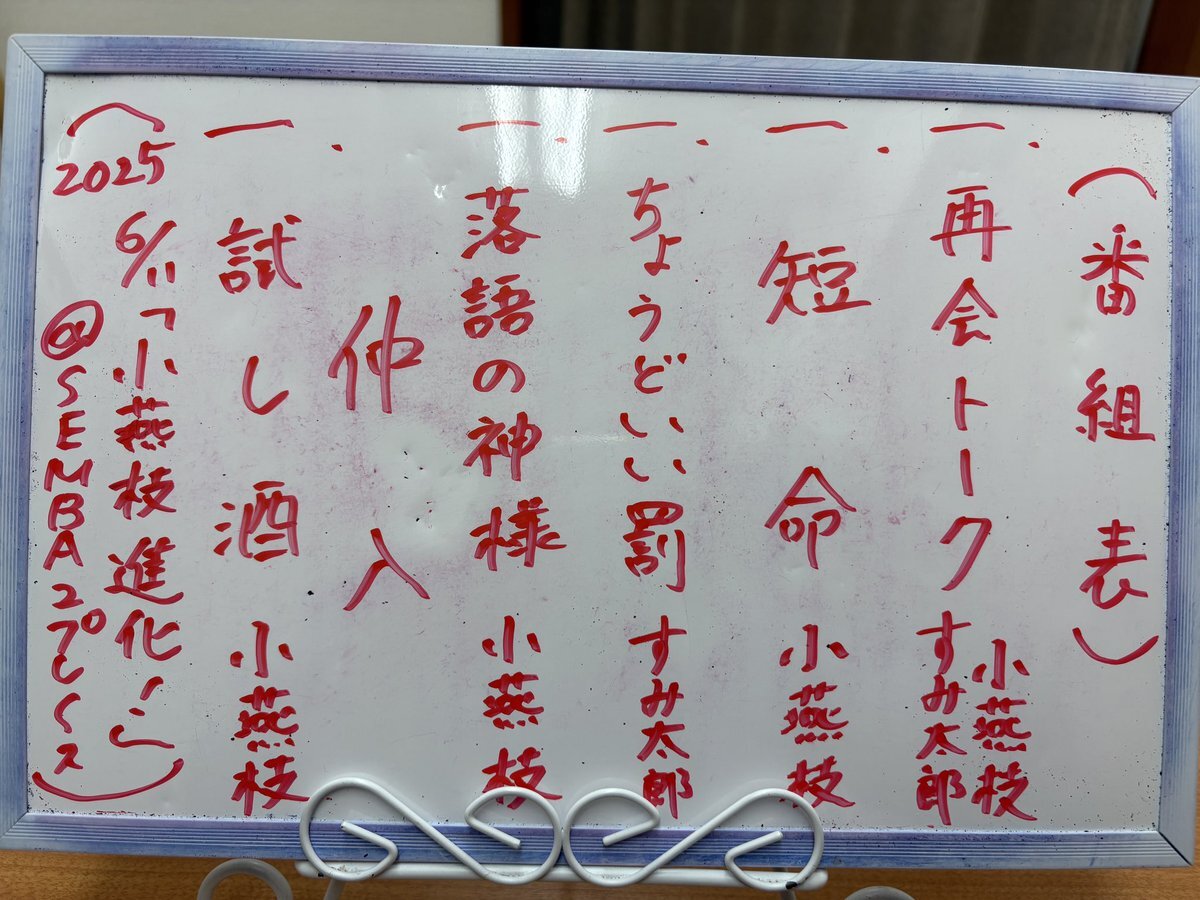 （番組表）
一、再会トーク 小燕枝 すみ太郎
一、短命 小燕枝
一、ちょうどいい罰 すみ太郎
一、落語の神様 小燕枝
仲入
一、試し酒 小燕枝
（2025 6/11「小燕枝進化…」
@SEMBA2プレイス）